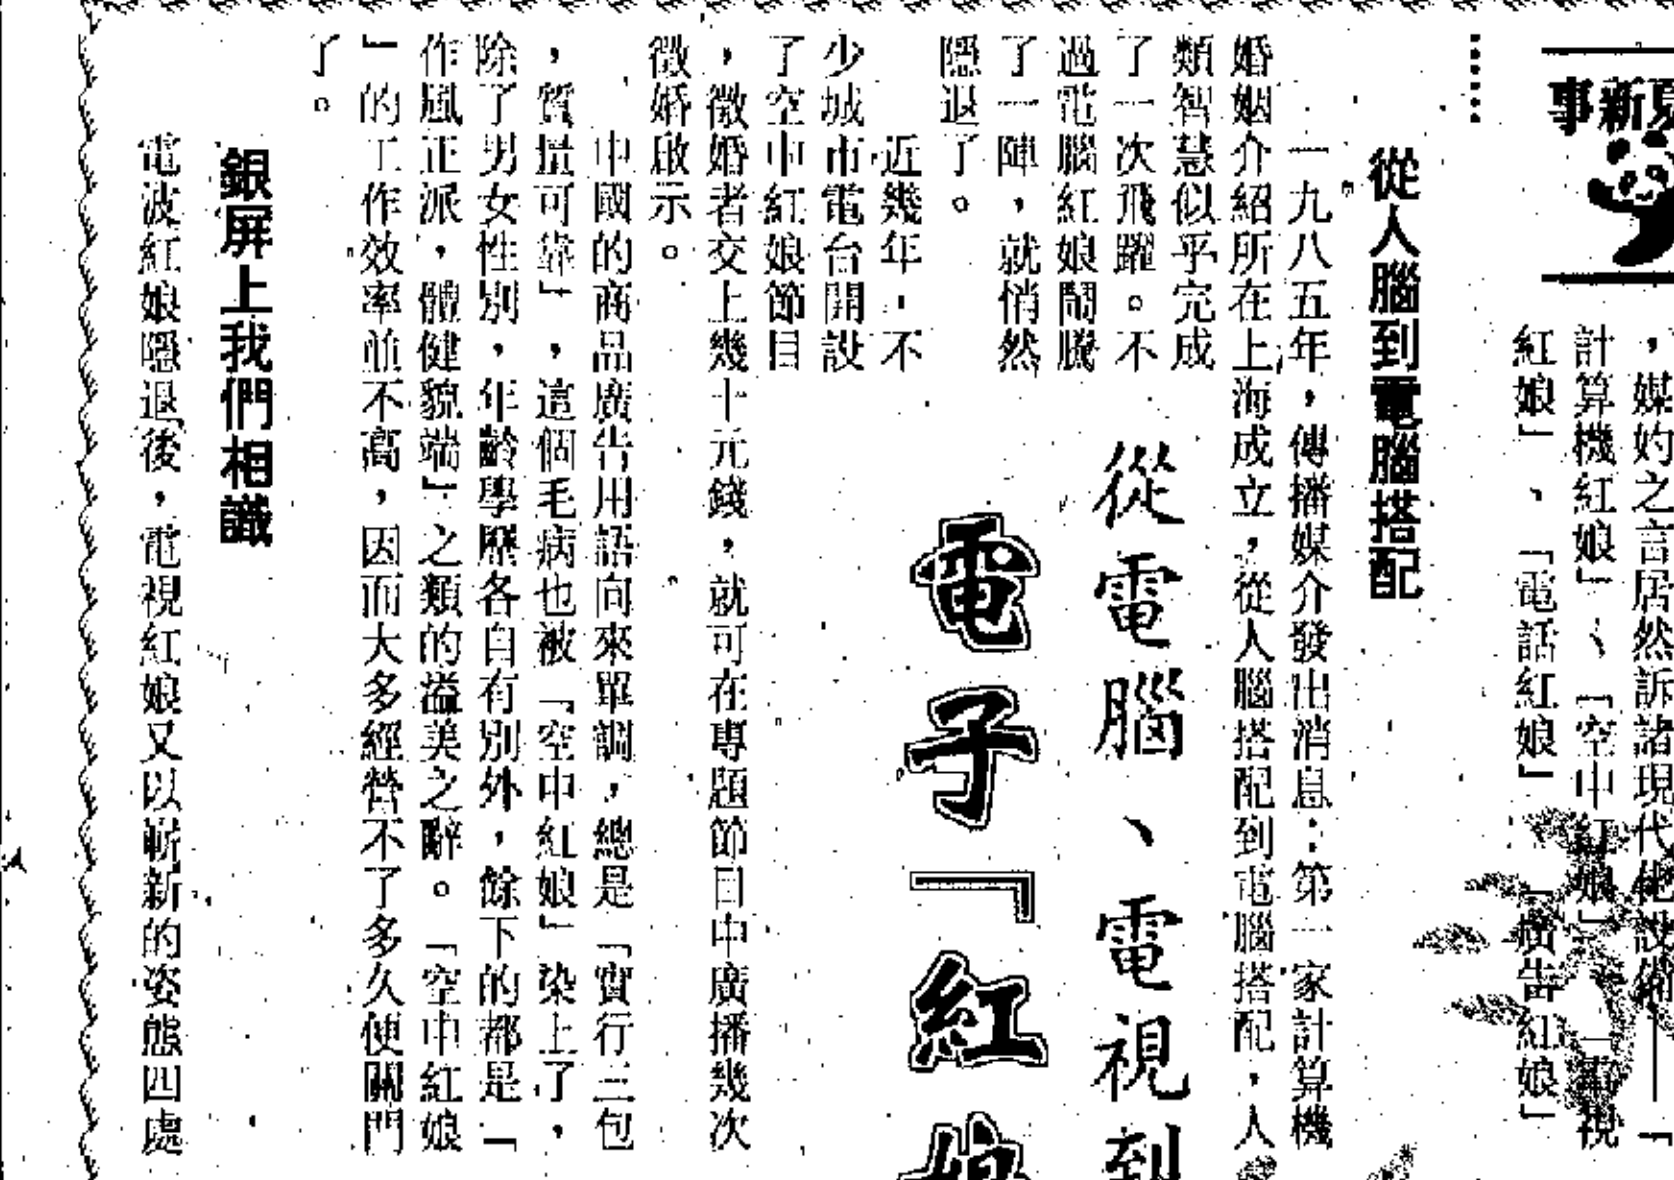 夏新事
，媒妁之言居然訴諸現代化設備——「
計算機紅娘」、「空中紅娘」、「電視
紅娘」、「電話紅娘」、「廣告紅娘」
……
從人腦到電腦搭配
一九八五年，傳播媒介發出消息：第一家計算機
婚姻介紹所在上海成立，從人腦搭配到電腦搭配，人
類智慧似乎完成
了一次飛躍。不
過電腦紅娘鬧騰
了一陣，就悄然
隱退了。
從電腦、電視到
電子『紅娘
近幾年，不
少城市電台開設
了空中紅娘節目
，徵婚者交上幾十元錢，就可在專題節目中廣播幾次
徵婚啟示。
中國的商品廣告用語向來單調，總是「實行三包
，質量可靠」，這個毛病也被「空中紅娘」染上了，
除了男女性別，年齡學歷各自有別外，餘下的都是「
作風正派，體健貌端」之類的溢美之辭。「空中紅娘
」的工作效率並不高，因而大多經營不了多久便關門
了。
銀屏上我們相識
電波紅娘隱退後，電視紅娘又以嶄新的姿態四處